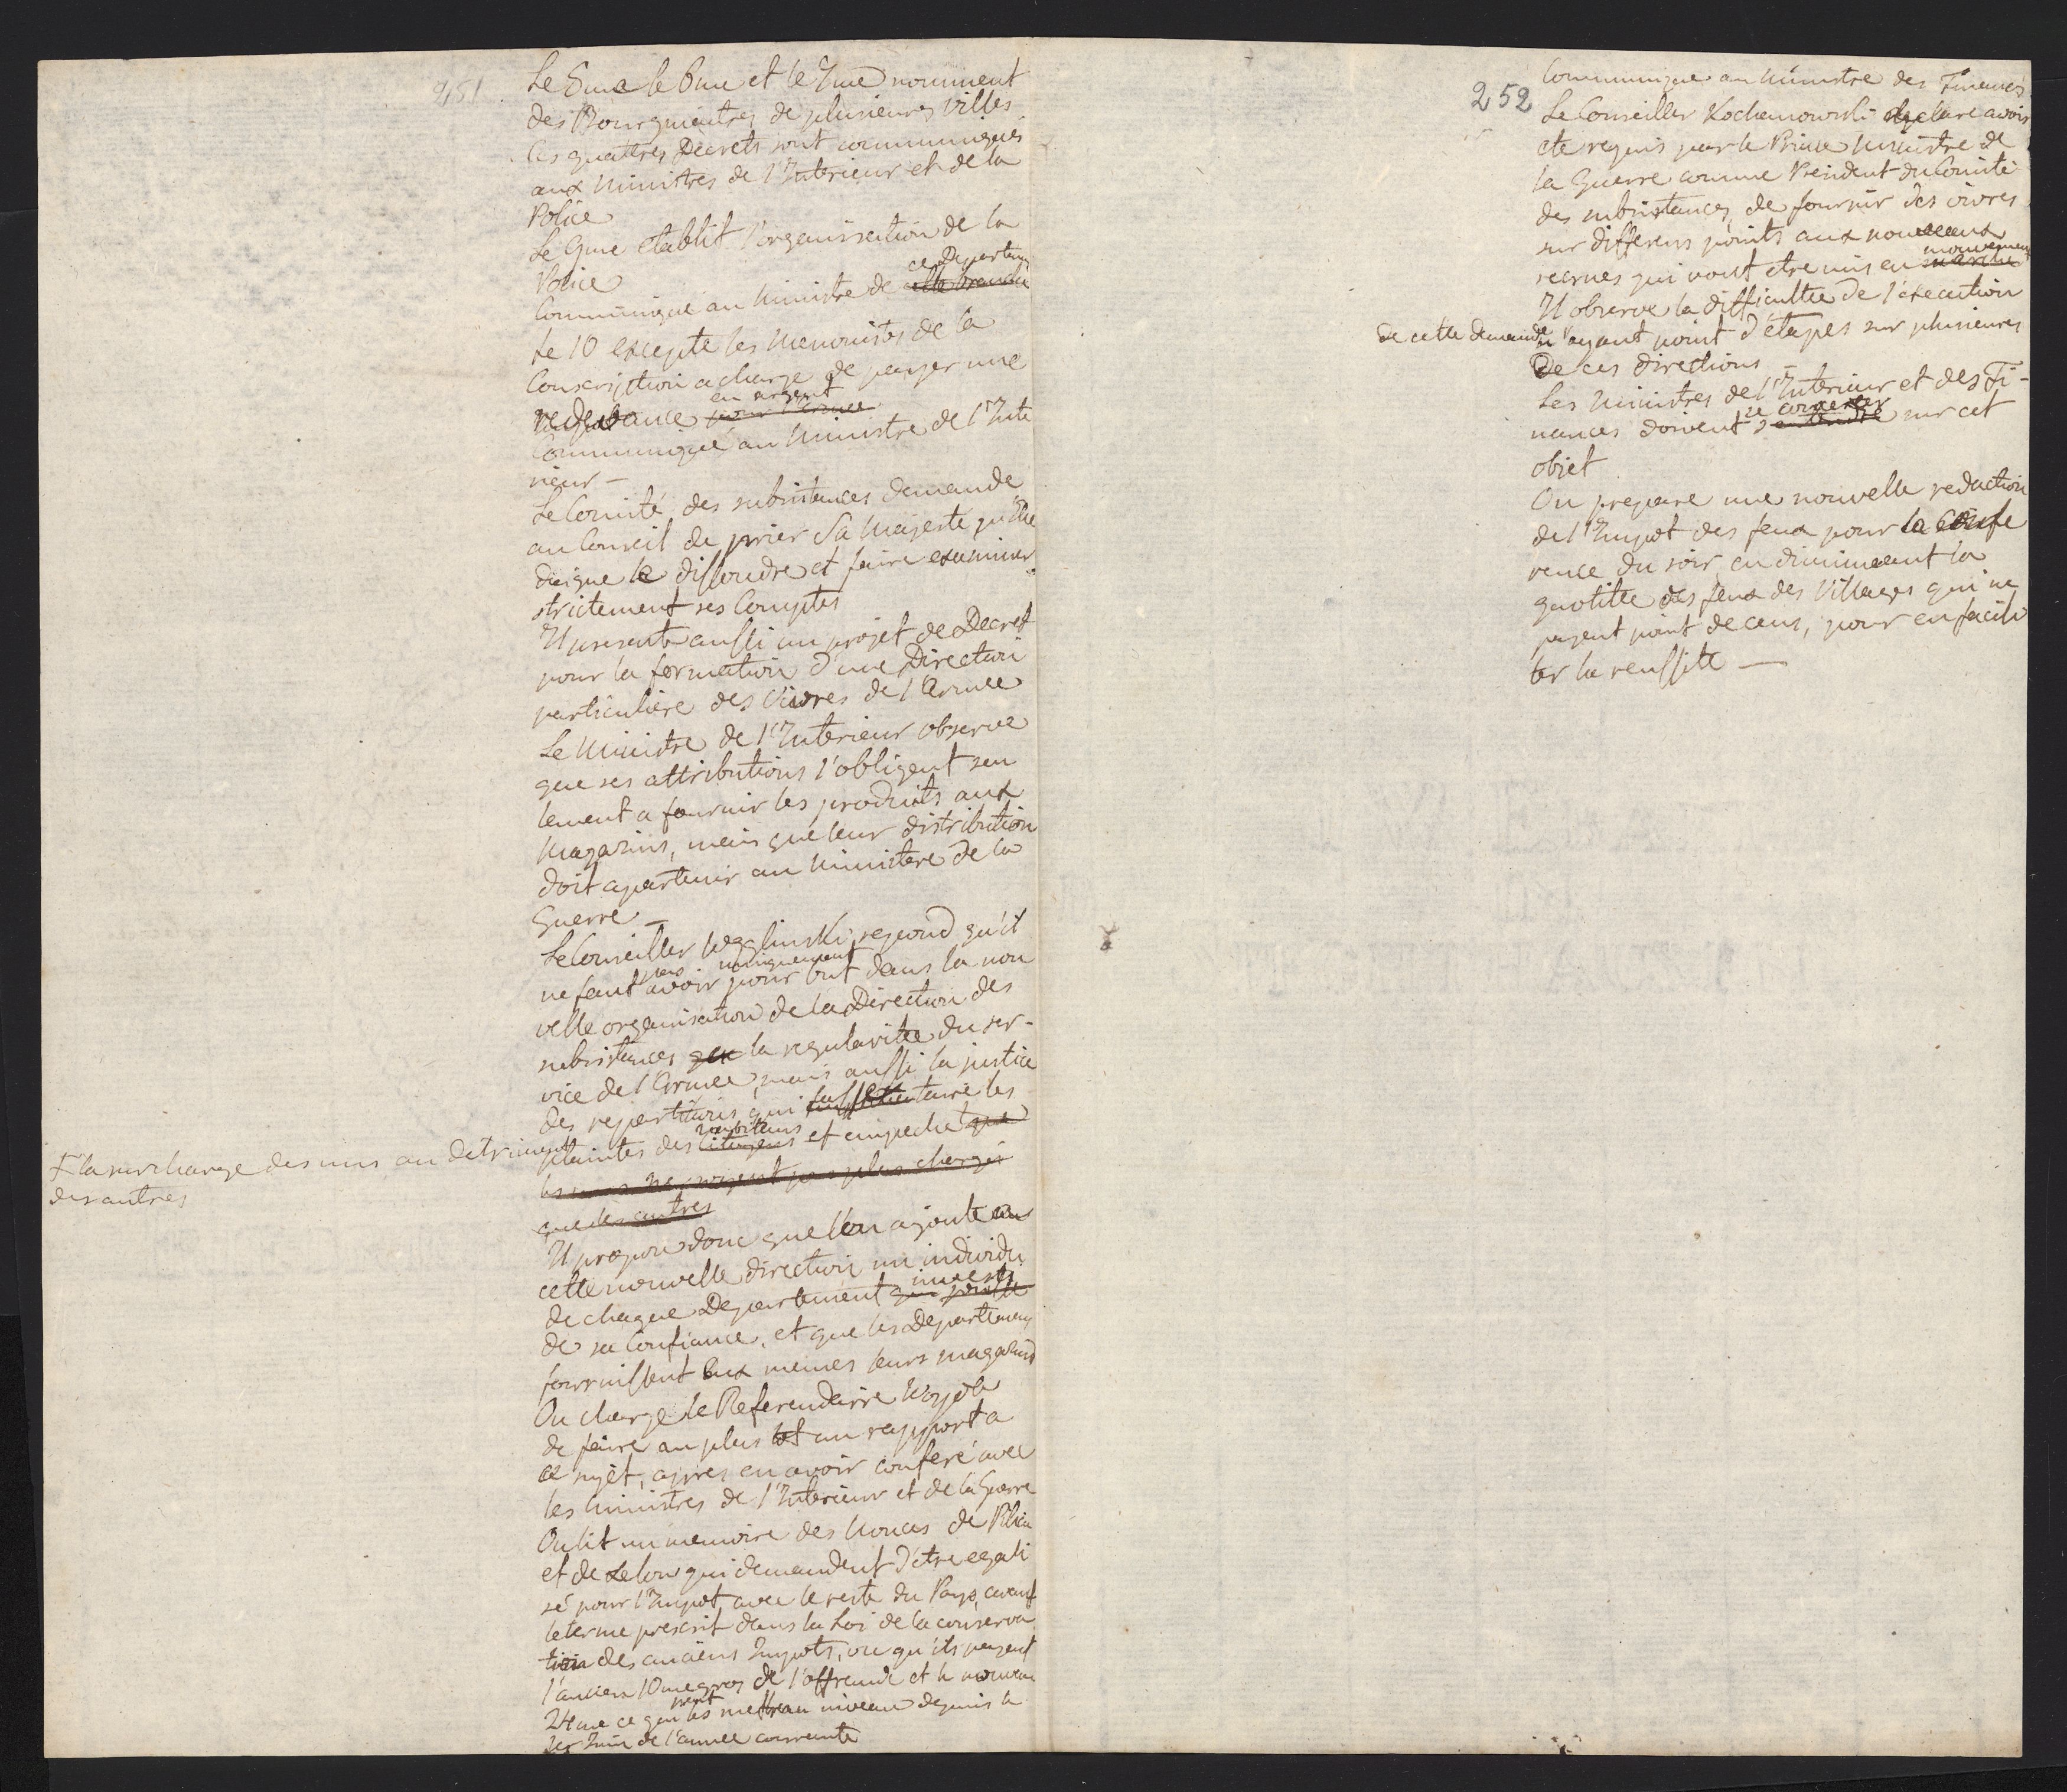 251
Le 5me le 6me et le 7me nomment
des Bourgmeistres de plusieures Villes
Ces quattres Decrets sont communiqués
aux Ministres de l'Interieur et de la
Police
Le 9me etablit l'organisation de la
Police
ce Departem
Communiqué au Ministre de cette branche
Le 10 excepte les Menonistes de la
Conscription a charge de payer une
en argent
redevance pour l'Armée
Communiqué au Ministre de l'Inte
rieur —
Le Comité des subsistances demande
au Conseil de prier Sa Majesté qu'Elle
daigne le dissoudre et faire examiner
strictement ses Comptes
Il presente aussi un projet de Decret
pour la formation d'une Direction
particuliere des Vivres de l'Armée
Le Ministre de l'Interieur observe
que ses attributions l'obligent seu
lement a fournir les produits aux
Magasins, mais que leur distribution
doit apartenir au Ministere de la
Guerre —
Le Conseiller Węglinski repond qu'il
pas uniquement
ne faut avoir pour but dans la nou
velle organisation de la Direction des
subsistances que la regularitée du ser-
vice de l'Armée, mais aussi la justice
des repartitions qui fasse taire les
habitans
plaintes des Citoyens et empeche que
les uns ne soyent pas plus chargés
que les autres
la surcharge des uns au detriment
des autres
Il propose donc que l'on ajoute a
cette nouvelle direction un individu
investi
de chaque Departement qui jouisse
de sa Confiance, et que les Departemens
fournissent Eux memes leurs magasins
On charge le Referendaire Woyda
de faire au plus tot un rapport a
ce sujèt, apres en avoir conferé avec
les Ministres de l'Interieur et de la Guerre
On lit un memoire des Nonces de Pilica
et de Lelow qui demandent d'etre egali
sé pour l'Impot avec le reste du Pays, avant
le terme prescrit dans la Loi de la conserva
tion des anciens Impots, vu qu'ils payent
l'ancien 10me gros de l'offrande et le nouveau
24me ce qui les mettrau niveau depuis le
1er Juin de l'année courrante
252
Communiqué au Ministre des Finances
Le Conseiller Kochanowski declare avoir
ete requis par le Prince Ministre de
la Guerre comme President du Comité
des subsistances, de fournir des vivres
sur differens points aux nouveaux
mouvement
recrues qui vont etre mis en marche
Il observe la difficultée de l'execution
de cette demande n'ayant point d'étapes sur plusieures
De ces directions —
Les Ministres de l'Interieur et des Fi-
se concerter
nances doivent s'entendre sur cet
objet
On prepare une nouvelle redaction
de l'Impot des feux pour la Confe
rence du soir en diminuant la
quotitée des feux des Villages qui ne
payent point de cens, pour en facili
ter la reussite —